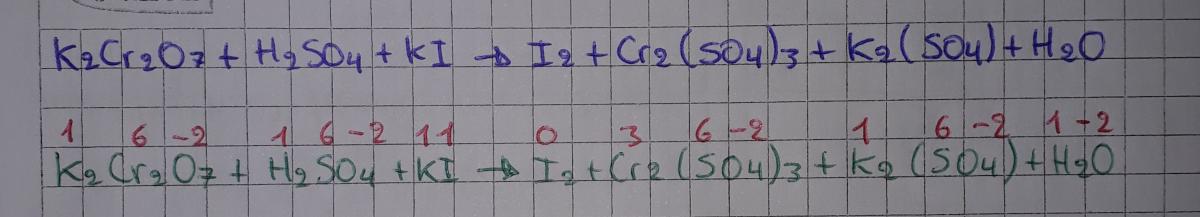 K₂Cr₂O₇ + H₂SO₄ + KI → I₂ + Cr₂(SO₄)₃ + K₂(SO₄) + H₂O
1 6 -2 1 6 -2 11 0 3 6 -2 1 6 -2 1 -2
K₂Cr₂O₇ + H₂SO₄ + KI → I₂ + Cr₂(SO₄)₃ + K₂(SO₄) + H₂O